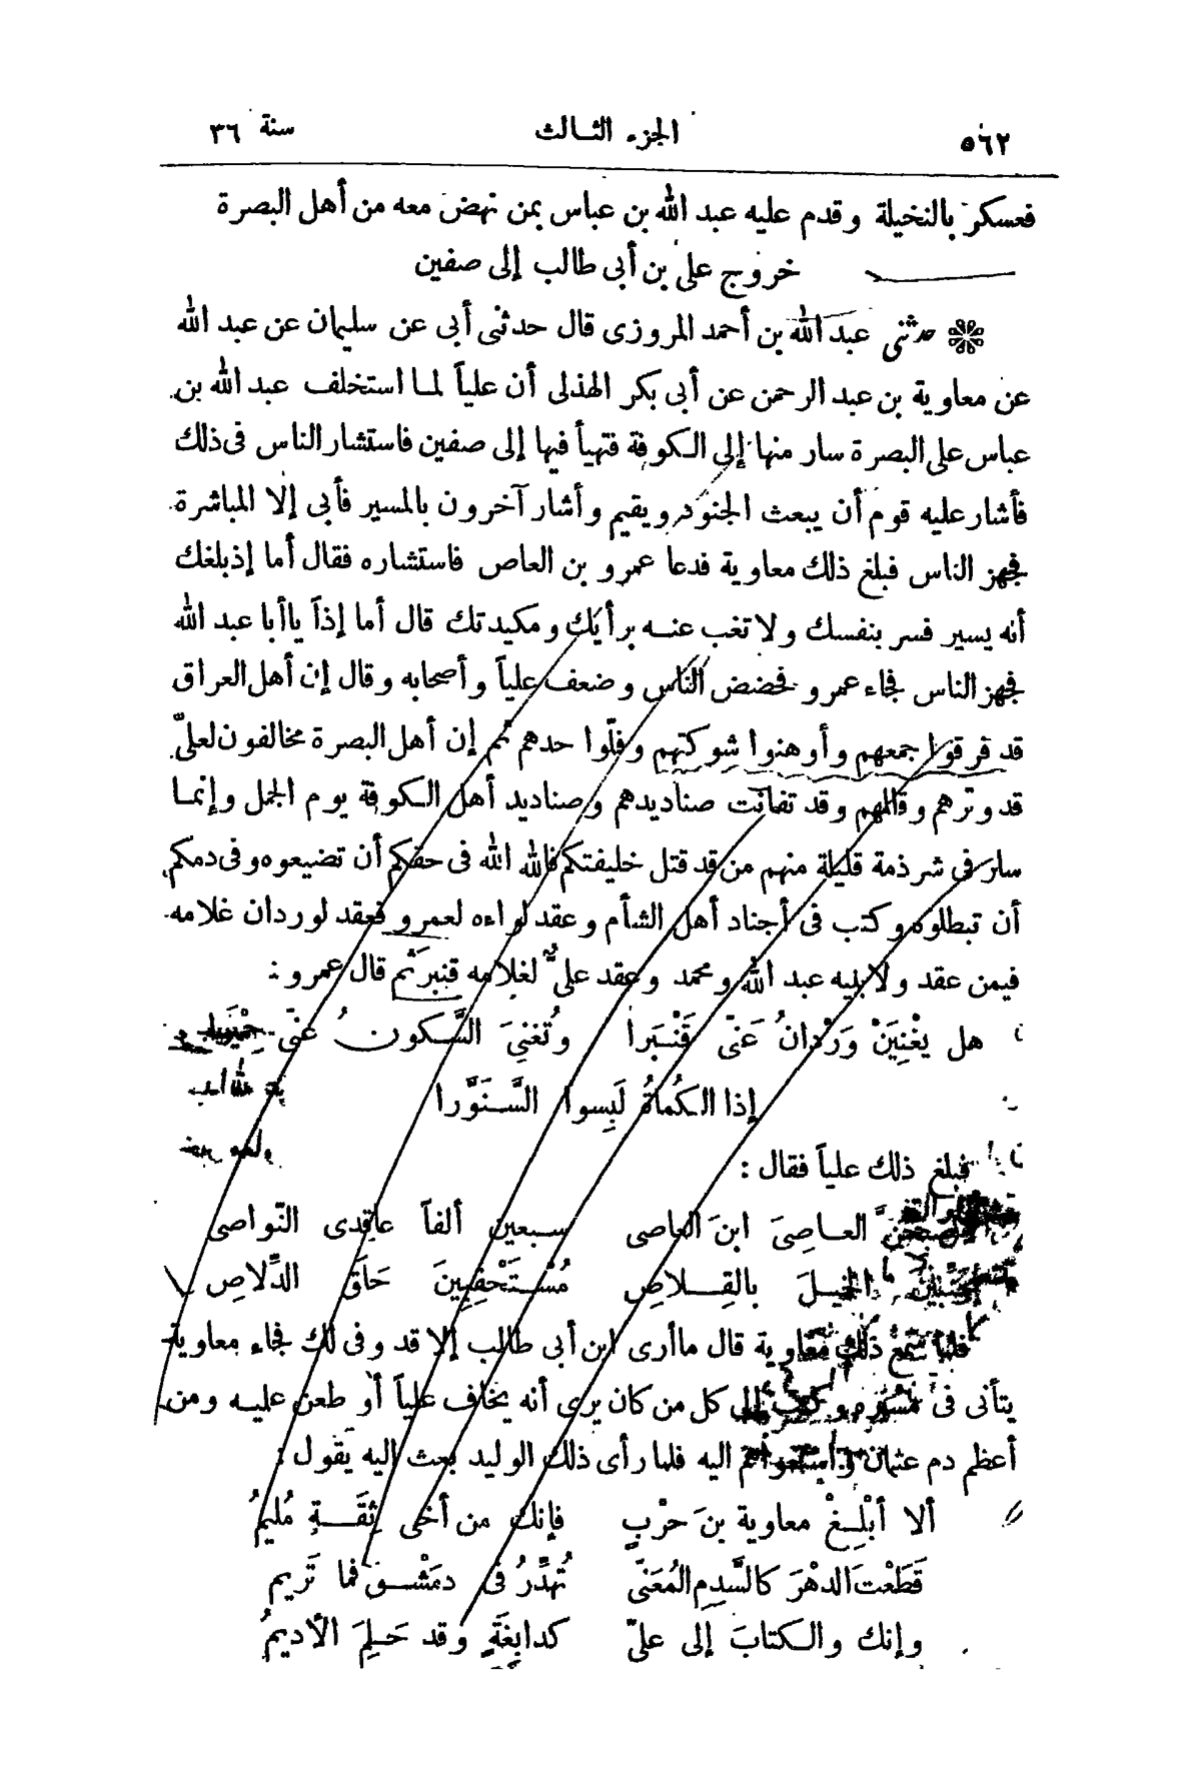 ٥٦٢ الجزء الثالث سنة ٣٦
فعسكر بالنخيلة وقدم عليه عبد الله بن عباس بمن نهض معه من أهل البصرة
خروج على بن أبى طالب إلى صفين
حدثنى عبد الله بن أحمد المروزى قال حدثنى أبى عن سليمان عن عبد الله
عن معاوية بن عبد الرحمن عن أبى بكر الهذلى أن علياً لما استخلف عبد الله بن
عباس على البصرة سار منها إلى الكوفة فتهيأ فيها إلى صفين فاستشار الناس فى ذلك
فأشار عليه قوم أن يبعث الجنود ويقيم وأشار آخرون بالمسير فأبى إلا المباشرة
فجهز الناس فبلغ ذلك معاوية فدعا عمرو بن العاص فاستشاره فقال أما إذ بلغك
أنه يسير فسر بنفسك ولا تغب عنه برأيك ومكيدتك قال أما إذاً يا أبا عبد الله
فجهز الناس فجاء عمرو فحضض الناس وضعف علياً وأصحابه وقال إن أهل العراق
قد فرقوا جمعهم وأوهنوا شوكتهم وفلّوا حدهم ثم إن أهل البصرة مخالفون لعلىّ
قد وترهم وقتلهم وقد تفانت صناديدهم وصناديد أهل الكوفة يوم الجمل وإنما
سار فى شرذمة قليلة منهم من قد قتل خليفتكم فالله الله فى حقكم أن تضيعوه وفى دمكم
أن تبطلوه وكتب فى أجناد أهل الشأم وعقد لواءه لعمرو فعقد لوردان غلامه
فيمن عقد ولابنيه عبد الله ومحمد وعقد علىّ لغلامه قنبر ثم قال عمرو :
هل يغْنِيَنْ وَرْدانُ عَنّى قَنْبَرا وتُغنِىَ السَّكونُ عنّى حِمْيَرا
إذا الكُماةُ لَبِسوا السَّنَوَّرا
فبلغ ذلك علياً فقال :
العاصِىَ ابنَ العاصى سبعين ألفاً عاقِدى النّواصى
الخيلَ بالقِلاصِ مُسْتَحْقِبِينَ حَلَقَ الدِّلاصِ
فلما سمع ذلك معاوية قال ما أرى ابن أبى طالب إلا قد وفى لك فجاء معاوية
يتأنى فى مسيره وكتب إلى كل من كان يرى أنه يخاف علياً أو طعن عليه ومن
أعظم دم عثمان واستعواهم اليه فلما رأى ذلك الوليد بعث اليه يقول :
ألا أبْلِغْ معاوية بنَ حرْبٍ فإنك من أخى ثِقَةٍ مُليمُ
قَطَعْتَ الدهْرَ كالسَّدِمِ المُعَنّى تُهَدِّرُ فى دمَشْقَ فما تَريم
وإنك والكتابَ إلى علىّ كدابِغَةٍ وقد حَلِمَ الأديمُ